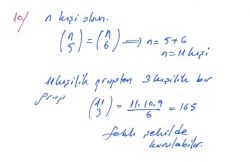 10/ n kişi olsun.
(n 5) = (n 6) ⟹ n = 5+6
n = 11 kişi
11 kişilik gruptan 3 kişilik bir
grup
(11 3) = 11.10.9 / 6 = 165
farklı şekilde
kurulabilir.